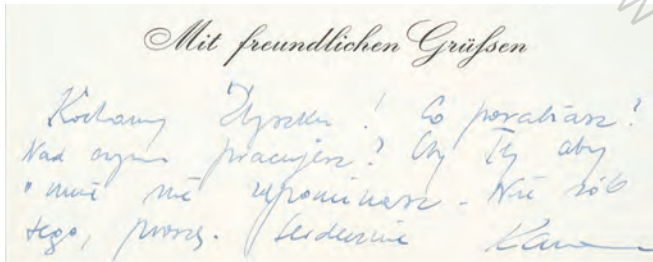 Mit freundlichen Grüßen
Kochany Zbyszku! Co porabiasz?
Nad czym pracujesz? Czy Ty aby
o mnie nie zapominasz. Nie rób
tego, proszę. Serdecznie